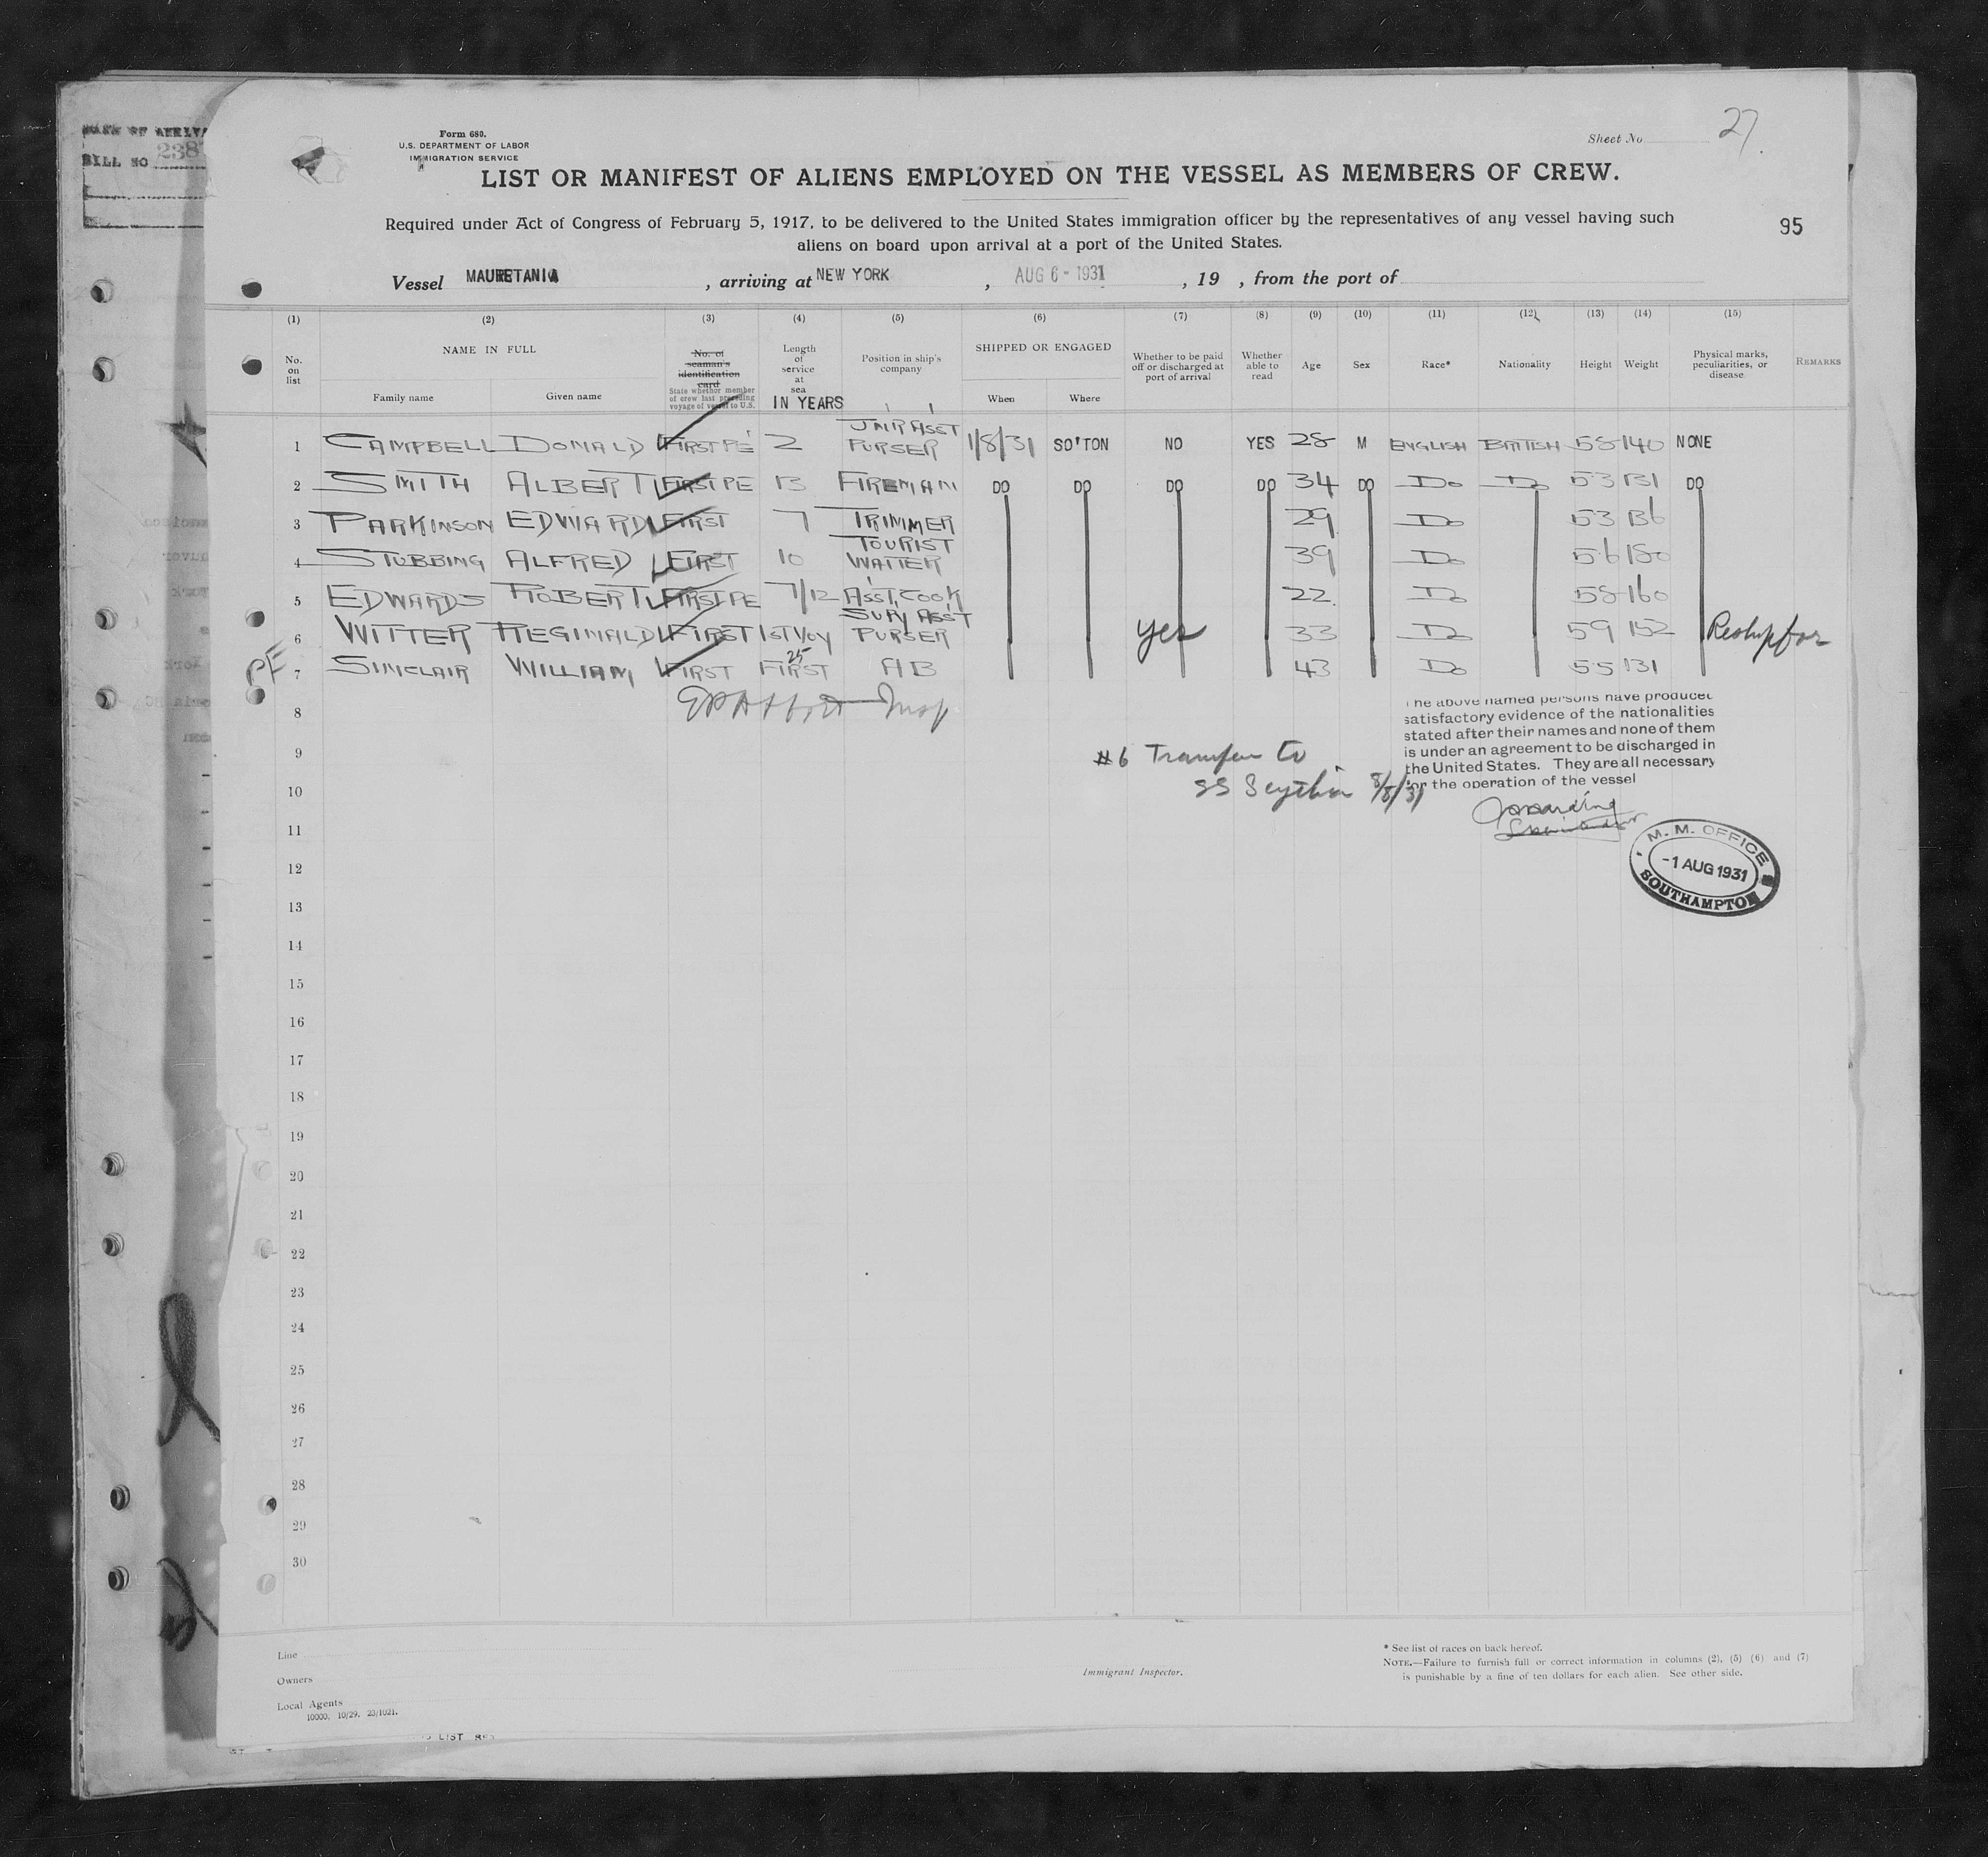 Form 680.
U.S. DEPARTMENT OF LABOR
IMMIGRATION SERVICE
BILL NO 238
Sheet No 27.
LIST OR MANIFEST OF ALIENS EMPLOYED ON THE VESSEL AS MEMBERS OF CREW.
Required under Act of Congress of February 5, 1917, to be delivered to the United States immigration officer by the representatives of any vessel having such
aliens on board upon arrival at a port of the United States.
95
Vessel MAURETANIA , arriving at NEW YORK , AUG 6 - 1931 , 19 , from the port of
(1) (2) (3) (4) (5) (6) (7) (8) (9) (10) (11) (12) (13) (14) (15)
No. on list
NAME IN FULL
Family name
Given name
No. of seaman's identification card
State whether member of crew last preceding voyage of vessel to U.S.
Length of service at sea
IN YEARS
Position in ship's company
SHIPPED OR ENGAGED
When
Where
Whether to be paid off or discharged at port of arrival
Whether able to read
Age
Sex
Race*
Nationality
Height
Weight
Physical marks, peculiarities, or disease
REMARKS
1 CAMPBELL DONALD FIRST PE 2 JNR ASST PURSER 1/8/31 SO'TON NO YES 28 M ENGLISH BRITISH 58 140 NONE
2 SMITH ALBERT FIRST PE 13 FIREMAN DO DO DO DO 34 DO Do Do 53 131 DO
3 PARKINSON EDWARD FIRST 7 TRIMMER 29 Do 53 136
4 STUBBING ALFRED FIRST 10 TOURIST WAITER 39 Do 56 180
5 EDWARDS ROBERT FIRST PE 7/12 ASST. COOK 22 Do 58 160
6 WITTER REGINALD FIRST 1ST VOY SUPY ASST PURSER yes 33 Do 59 152 Reship for
7 SINCLAIR WILLIAM FIRST FIRST 25 AB 43 Do 55 131
8
The above named persons have produced
satisfactory evidence of the nationalities
stated after their names and none of them
is under an agreement to be discharged in
the United States. They are all necessary
for the operation of the vessel
9
#6 Transfer to
SS Scythia 8/8/31
10
11
M. M. OFFICE
-1 AUG 1931
SOUTHAMPTON
12
13
14
15
16
17
18
19
20
21
22
23
24
25
26
27
28
29
30
Line
Owners
Local Agents
10000, 10/29. 23/1021.
Immigrant Inspector.
* See list of races on back hereof.
NOTE.—Failure to furnish full or correct information in columns (2), (5) (6) and (7)
is punishable by a fine of ten dollars for each alien. See other side.